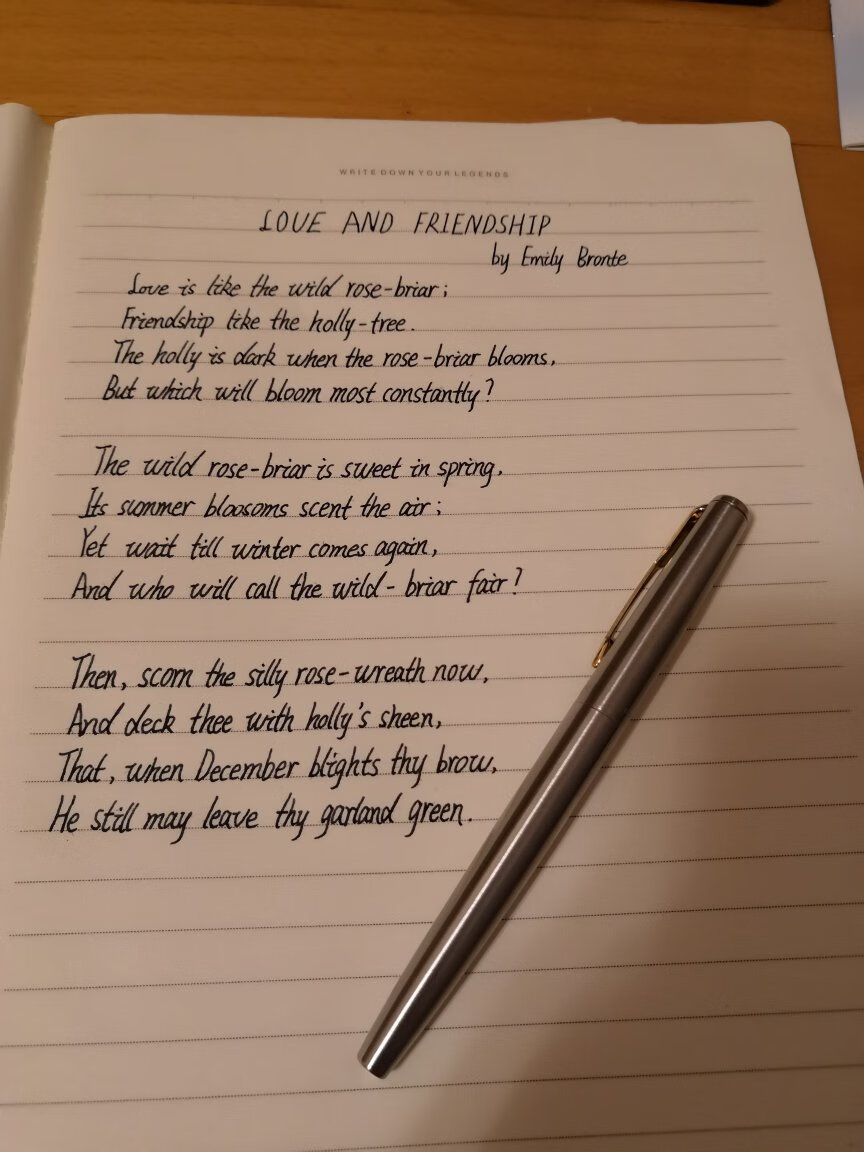 WRITE DOWN YOUR LEGENDS
LOVE AND FRIENDSHIP
by Emily Bronte
Love is like the wild rose-briar;
Friendship like the holly-tree.
The holly is dark when the rose-briar blooms,
But which will bloom most constantly?
The wild rose-briar is sweet in spring,
Its summer bloosoms scent the air;
Yet wait till winter comes again,
And who will call the wild-briar fair?
Then, scorn the silly rose-wreath now,
And deck thee with holly's sheen,
That, when December blights thy brow,
He still may leave thy garland green.